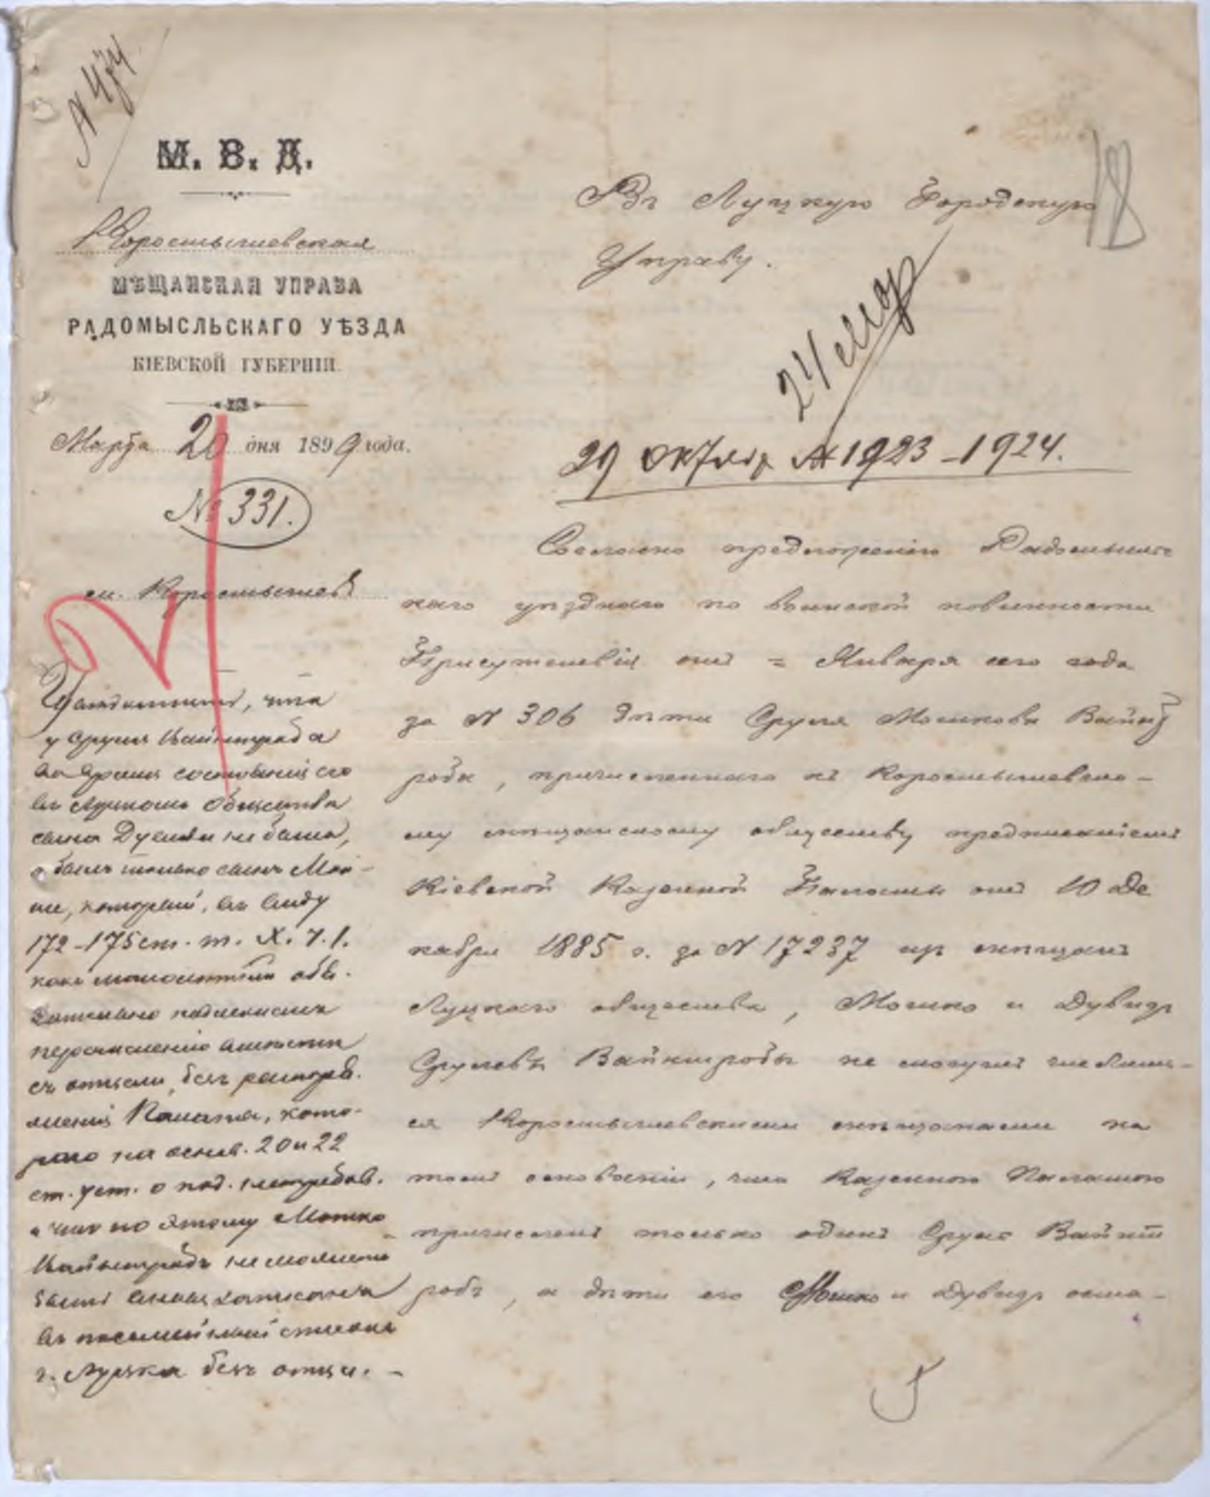 N 474
М. В. Д.
Коростышевская
МѢЩАНСКАЯ УПРАВА
РАДОМЫСЛЬСКАГО УѢЗДА
КІЕВСКОЙ ГУБЕРНІИ.
Марта 20 дня 1899 года.
№ 331.
м. Коростышевъ
18
Въ Луцкую Городскую
Управу.
24 мар
29 октяб № 1923-1924.
Согласно предложенію Радомысльс
каго уѣзднаго по воинской повинности
Присутствія отъ = Января сего года
за N 306 дѣти Сруля Мошкова Вайнш
роба, причисленнаго къ Коростышевско-
му мѣщанскому обществу предписаніемъ
Кіевской Казенной Палаты отъ 10 Де
кабря 1885 г. за N 17237 изъ мѣщанъ
Луцкаго общества, Мошко и Дувидъ
Срулевы Вайнштробы не могутъ числить-
ся Коростышевскими мѣщанами на
томъ основаніи, что Казенною Палатою
причисленъ только одинъ Сруль Вайнш
робъ, а дѣти его Мошко и Дувидъ оста-
что
у Сруля Вайнштроба
во время состоянія его
въ Луцкомъ Обществѣ
сына Дувида не было,
а былъ только сынъ Мош-
ко, который, въ виду
172-175 ст. т. X. ч. 1.
какъ малолѣтній обя-
зательно подлежалъ
перечисленію вмѣстѣ
съ отцемъ, безъ распоря-
женія Палаты, кото-
рого на основ. 20 и 22
ст. уст. о под. не требов.
а что по этому Мошко
Вайнштробъ не можетъ
быть записанъ
въ посемейный списокъ
г. Луцка безъ отца. -